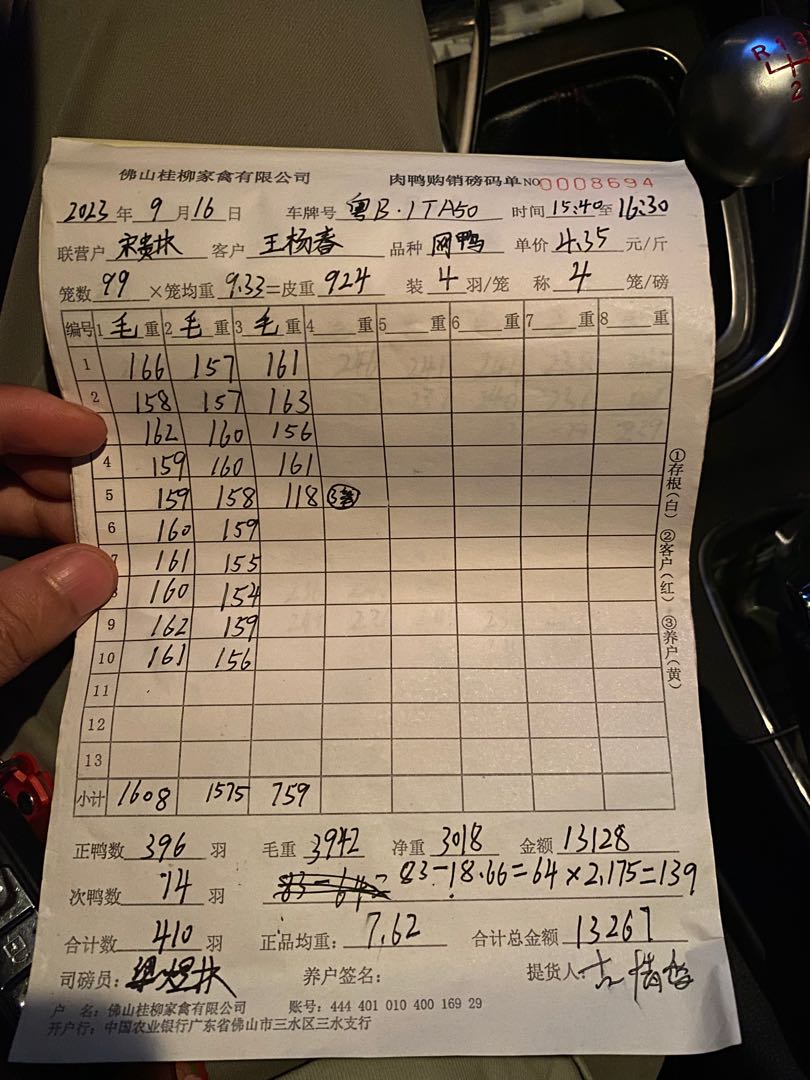 R 1 3
2
佛山桂柳家禽有限公司 肉鸭购销磅码单 NO 0008694
2023年9月16日 车牌号 粤B·1TA50 时间 15:40至16:30
联营户 宋贵扶 客户 王杨春 品种 网鸭 单价 4.35 元/斤
笼数 99 ×笼均重 9.33 =皮重 924 装 4 羽/笼 称 4 笼/磅
编号 1 毛重 2 毛重 3 毛重 4 重 5 重 6 重 7 重 8 重
1 166 157 161
2 158 157 163
162 160 156
4 159 160 161
5 159 158 118
6 160 159
7 161 155
8 160 154
9 162 159
10 161 156
11
12
13
小计 1608 1575 759
①存根(白) ②客户(红) ③养户(黄)
正鸭数 396 羽 毛重 3942 净重 3018 金额 13128
次鸭数 14 羽 83-18.66=64×2.175=139
合计数 410 羽 正品均重: 7.62 合计总金额 13267
司磅员: 养户签名: 提货人:
户 名: 佛山桂柳家禽有限公司 账号: 444 401 010 400 169 29
开户行: 中国农业银行广东省佛山市三水区三水支行